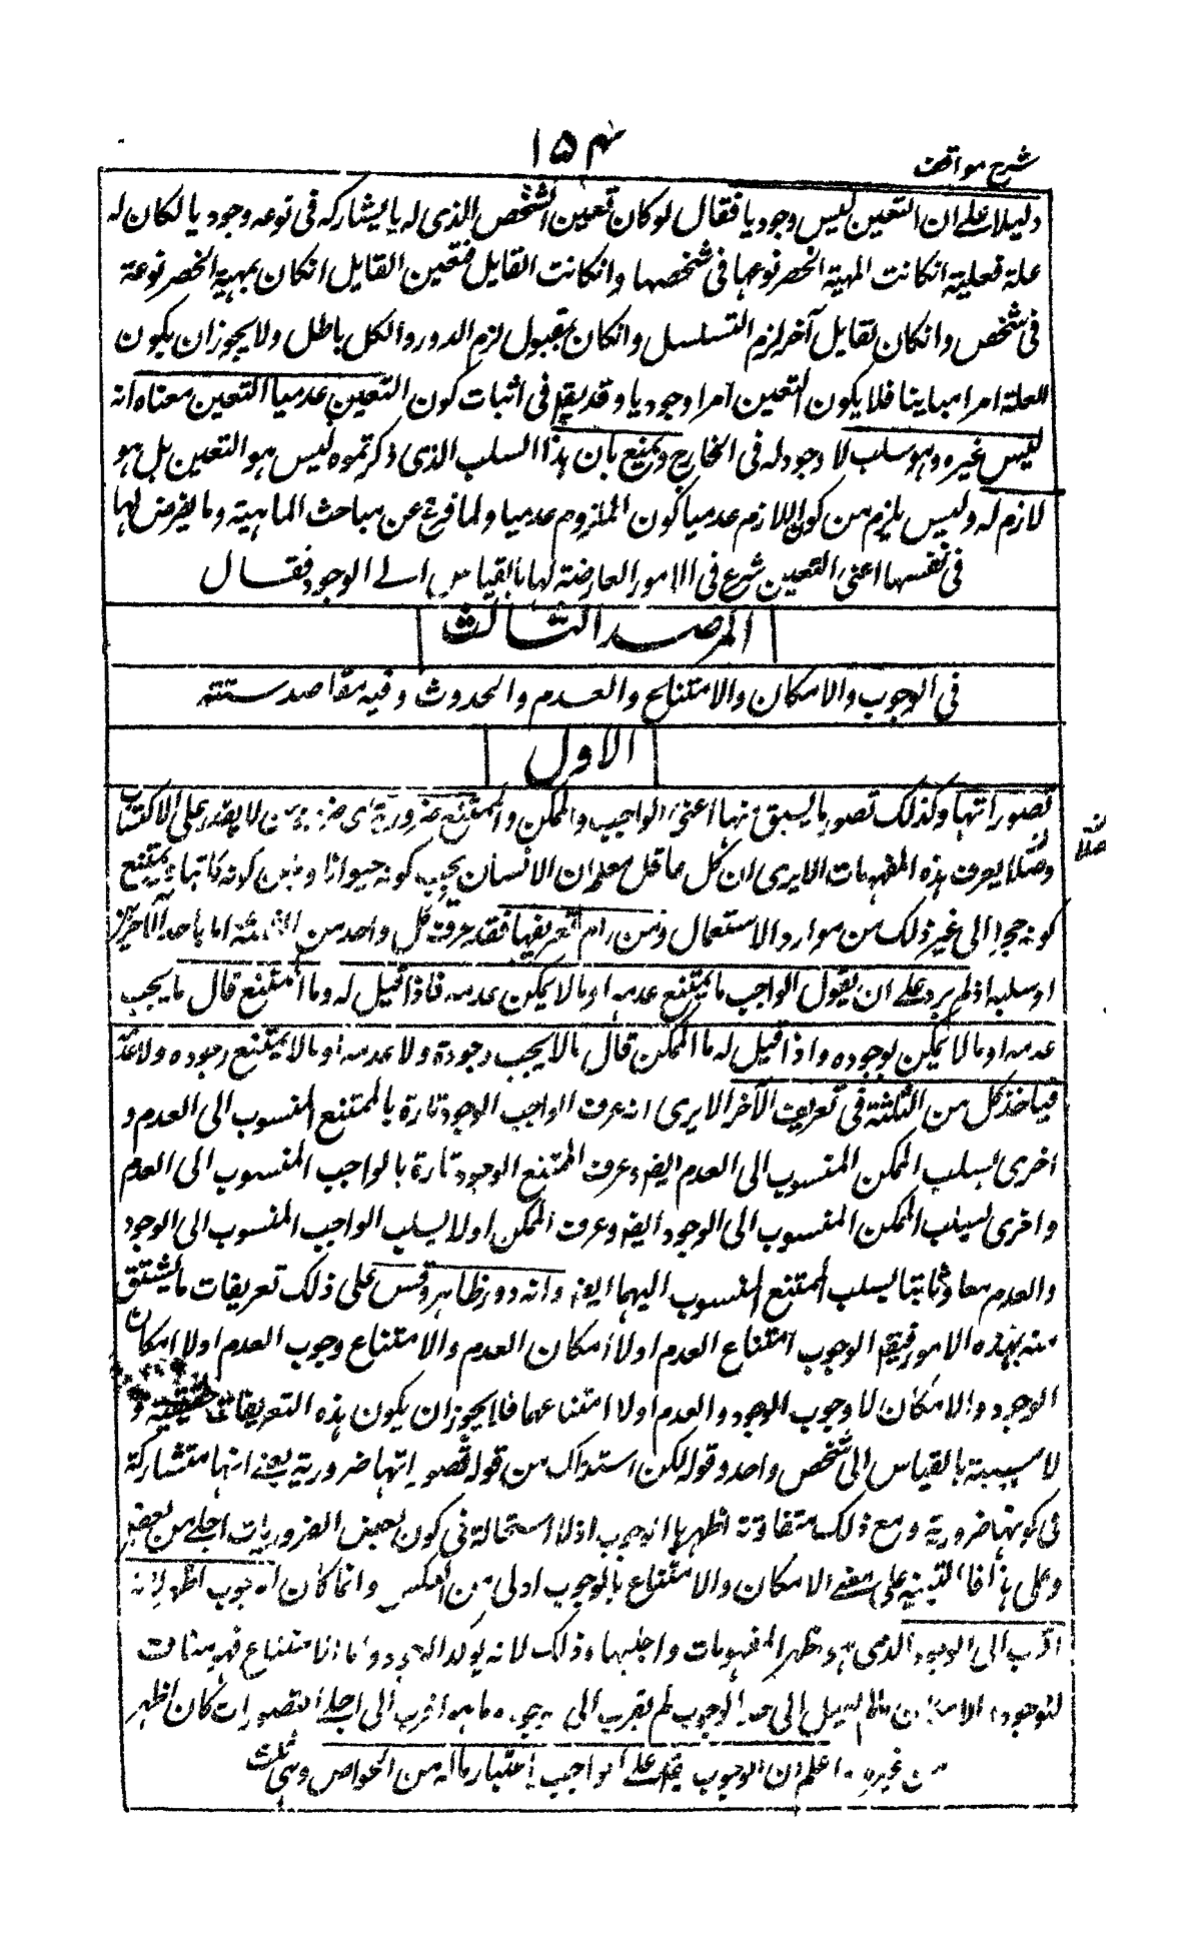 شرح مواقف
١٥٣
دليلا على ان التعين ليس وجوديا فقال لو كان تعين الشخص الذى له يا يشاركه فى نوعه وجوديا لكان له
علة فعلية انكانت المهية انحصر نوعها فى شخصها وانكانت القابل فتعين القابل انكان بمهية انحصر نوعة
فى شخص وانكان لقابل آخر لزم التسلسل وانكان بمقبول لزم الدور والكل باطل ولا يجوز ان يكون
العلة امرا مباينا فلا يكون التعين امرا وجوديا وقد يقم فى اثبات كون التعين عدميا التعين معناه انه
ليس غيره وهو سلب لا وجود له فى الخارج ويمنع بان هذا السلب الذى ذكرتموه ليس هو التعين بل هو
لازم له وليس يلزم من كون اللازم عدميا كون الملزوم عدميا ولما فرغ عن مباحث الماهية وما يعرض لها
فى نفسها اعنى التعين شرع فى الامور العارضة لها بالقياس الى الوجود فقال
المرصد الثالث
فى الوجوب والامكان والامتناع والعدم والحدوث وفيه مقاصد ستته
الاول
تصوراتها وكذلك تصور ما يسبق منها اعنى الواجب والممكن والممتنع ضرورية من لا يقدر على الاكتساب
يعرف هذه المفهومات الا يرى ان كل عاقل معلم ان الانسان يجب كونه حيوانا ويمكن كونه كاتبا ويمتنع
كونه حجرا الى غير ذلك من موارد الاستعمال ومن رام تعريفها فقد عرف كل واحد من الثلثة اما باحد الآخرين
او سلبه اذ لم يزد على ان يقول الواجب ما يمتنع عدمه او ما لا يمكن عدمه فاذا قيل له وما الممتنع قال ما يجب
عدمه او ما لا يمكن وجوده واذا قيل له ما الممكن قال ما لا يجب وجوده ولا عدمه او ما لا يمتنع وجوده ولا عدمه
فياخذ كل من الثلثة فى تعريف الآخر الا يرى انه عرف الواجب الوجود تارة بالممتنع المنسوب الى العدم و
اخرى بسلب الممكن المنسوب الى العدم ايضه وعرف الممتنع الوجود تارة بالواجب المنسوب الى العدم
واخرى بسلب الممكن المنسوب الى الوجود ايضه وعرف الممكن اولا بسلب الواجب المنسوب الى الوجود
والعدم معا وثانيا بسلب الممتنع المنسوب اليهما ايضه وانه دور ظاهر وقس على ذلك تعريفات ما يشتق
منه هذه الامور فيقم الوجوب امتناع العدم او لا امكان العدم والامتناع وجوب العدم او لا امكان
الوجود والامكان لا وجوب الوجود والعدم او لا امتناعهما فلا يجوز ان يكون هذه التعريفات حقيقية و
لا بالقياس الى شخص واحد وقوله لكن استدراك من قوله تصوراتها ضرورية يعنى انها متشاركة
فى كونها ضرورية ومع ذلك متفاوتة اظهرها الوجوب اذ لا استحالة فى كون بعض الضروريات اجلى من بعض
وعلى هذا فالتنبيه على معنى الامكان والامتناع بالوجوب اولى من العكس وانما كان الوجوب اظهر لانه
اقرب الى الوجود الذى هو اظهر المفهومات واجليها وذلك لانه يؤكد الوجود واما الامتناع فهو مناف
للوجود والامكان ما لم يصل الى حد الوجوب لم يقرب الى الوجود وما هو اقرب الى اجلى التصورات كان اظهر
من غيره واعلم ان الوجوب يقم على الواجب باعتبار ماله من الخواص وهى ثلث